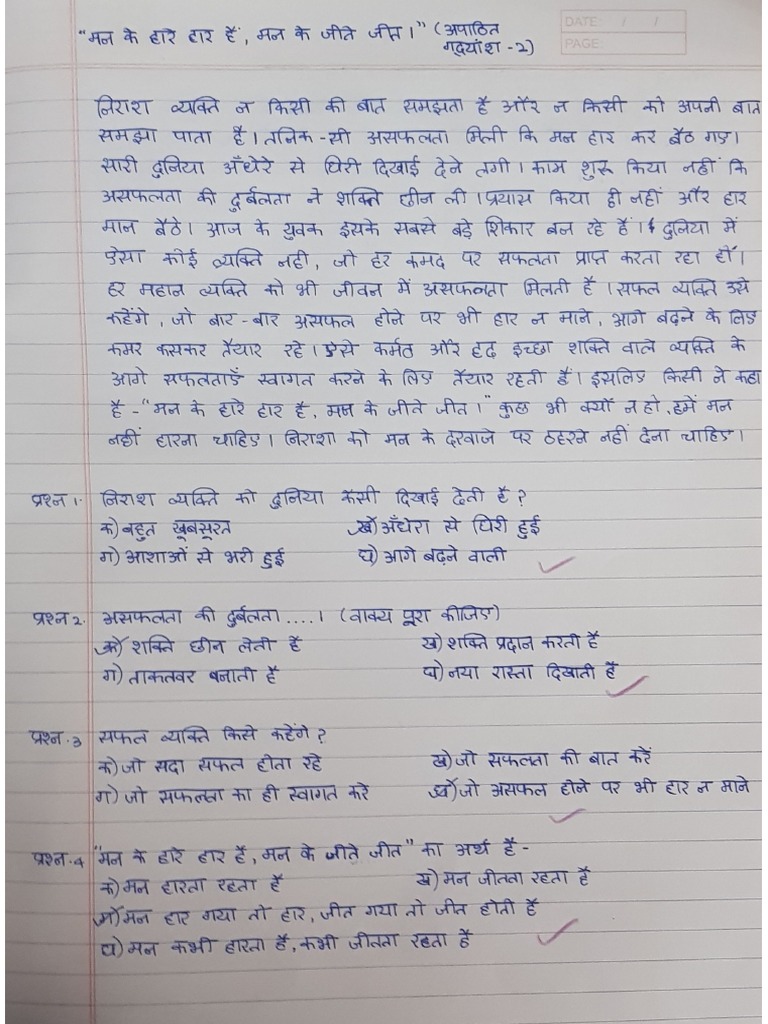 "मन के हारे हार हैं, मन के जीते जीत।" (अपाठित
गद्यांश -2)
DATE: / /
PAGE:
निराश व्यक्ति न किसी की बात समझता है और न किसी को अपनी बात
समझा पाता है। तनिक-सी असफलता मिली कि मन हार कर बैठ गए।
सारी दुनिया अँधेरे से घिरी दिखाई देने लगी। काम शुरू किया नहीं कि
असफलता की दुर्बलता ने शक्ति छीन ली। प्रयास किया ही नहीं और हार
मान बैठे। आज के युवक इसके सबसे बड़े शिकार बन रहे हैं। दुनिया में
ऐसा कोई व्यक्ति नही, जो हर कमद पर सफलता प्राप्त करता रहा हो।
हर महान व्यक्ति को भी जीवन में असफलता मिलती है। सफल व्यक्ति उसे
कहेंगे, जो बार-बार असफल होने पर भी हार न माने, आगे बढ़ने के लिए
कमर कसकर तैयार रहे। ऐसे कर्मठ और दृढ़ इच्छा शक्ति वाले व्यक्ति के
आगे सफलताएँ स्वागत करने के लिए तैयार रहती हैं। इसलिए किसी ने कहा
है-"मन के हारे हार है, मन के जीते जीत।" कुछ भी क्यों न हो, हमें मन
नहीं हारना चाहिए। निराशा को मन के दरवाजे पर ठहरने नहीं देना चाहिए।
प्रश्न 1. निराश व्यक्ति को दुनिया कैसी दिखाई देती है?
क) बहुत खूबसूरत ख) अँधेरा से घिरी हुई
ग) आशाओं से भरी हुई घ) आगे बढ़ने वाली
प्रश्न 2. असफलता की दुर्बलता ....। (वाक्य पूरा कीजिए)
क) शक्ति छीन लेती है ख) शक्ति प्रदान करती है
ग) ताकतवर बनाती है घ) नया रास्ता दिखाती है
प्रश्न.3 सफल व्यक्ति किसे कहेंगे?
क) जो सदा सफल होता रहे ख) जो सफलता की बात करें
ग) जो सफलता का ही स्वागत करे घ) जो असफल होने पर भी हार न माने
प्रश्न.4 "मन के हारे हार है, मन के जीते जीत" का अर्थ है-
क) मन हारता रहता है ख) मन जीतता रहता है
ग) मन हार गया तो हार, जीत गया तो जीत होती है
घ) मन कभी हारता है, कभी जीतता रहता है